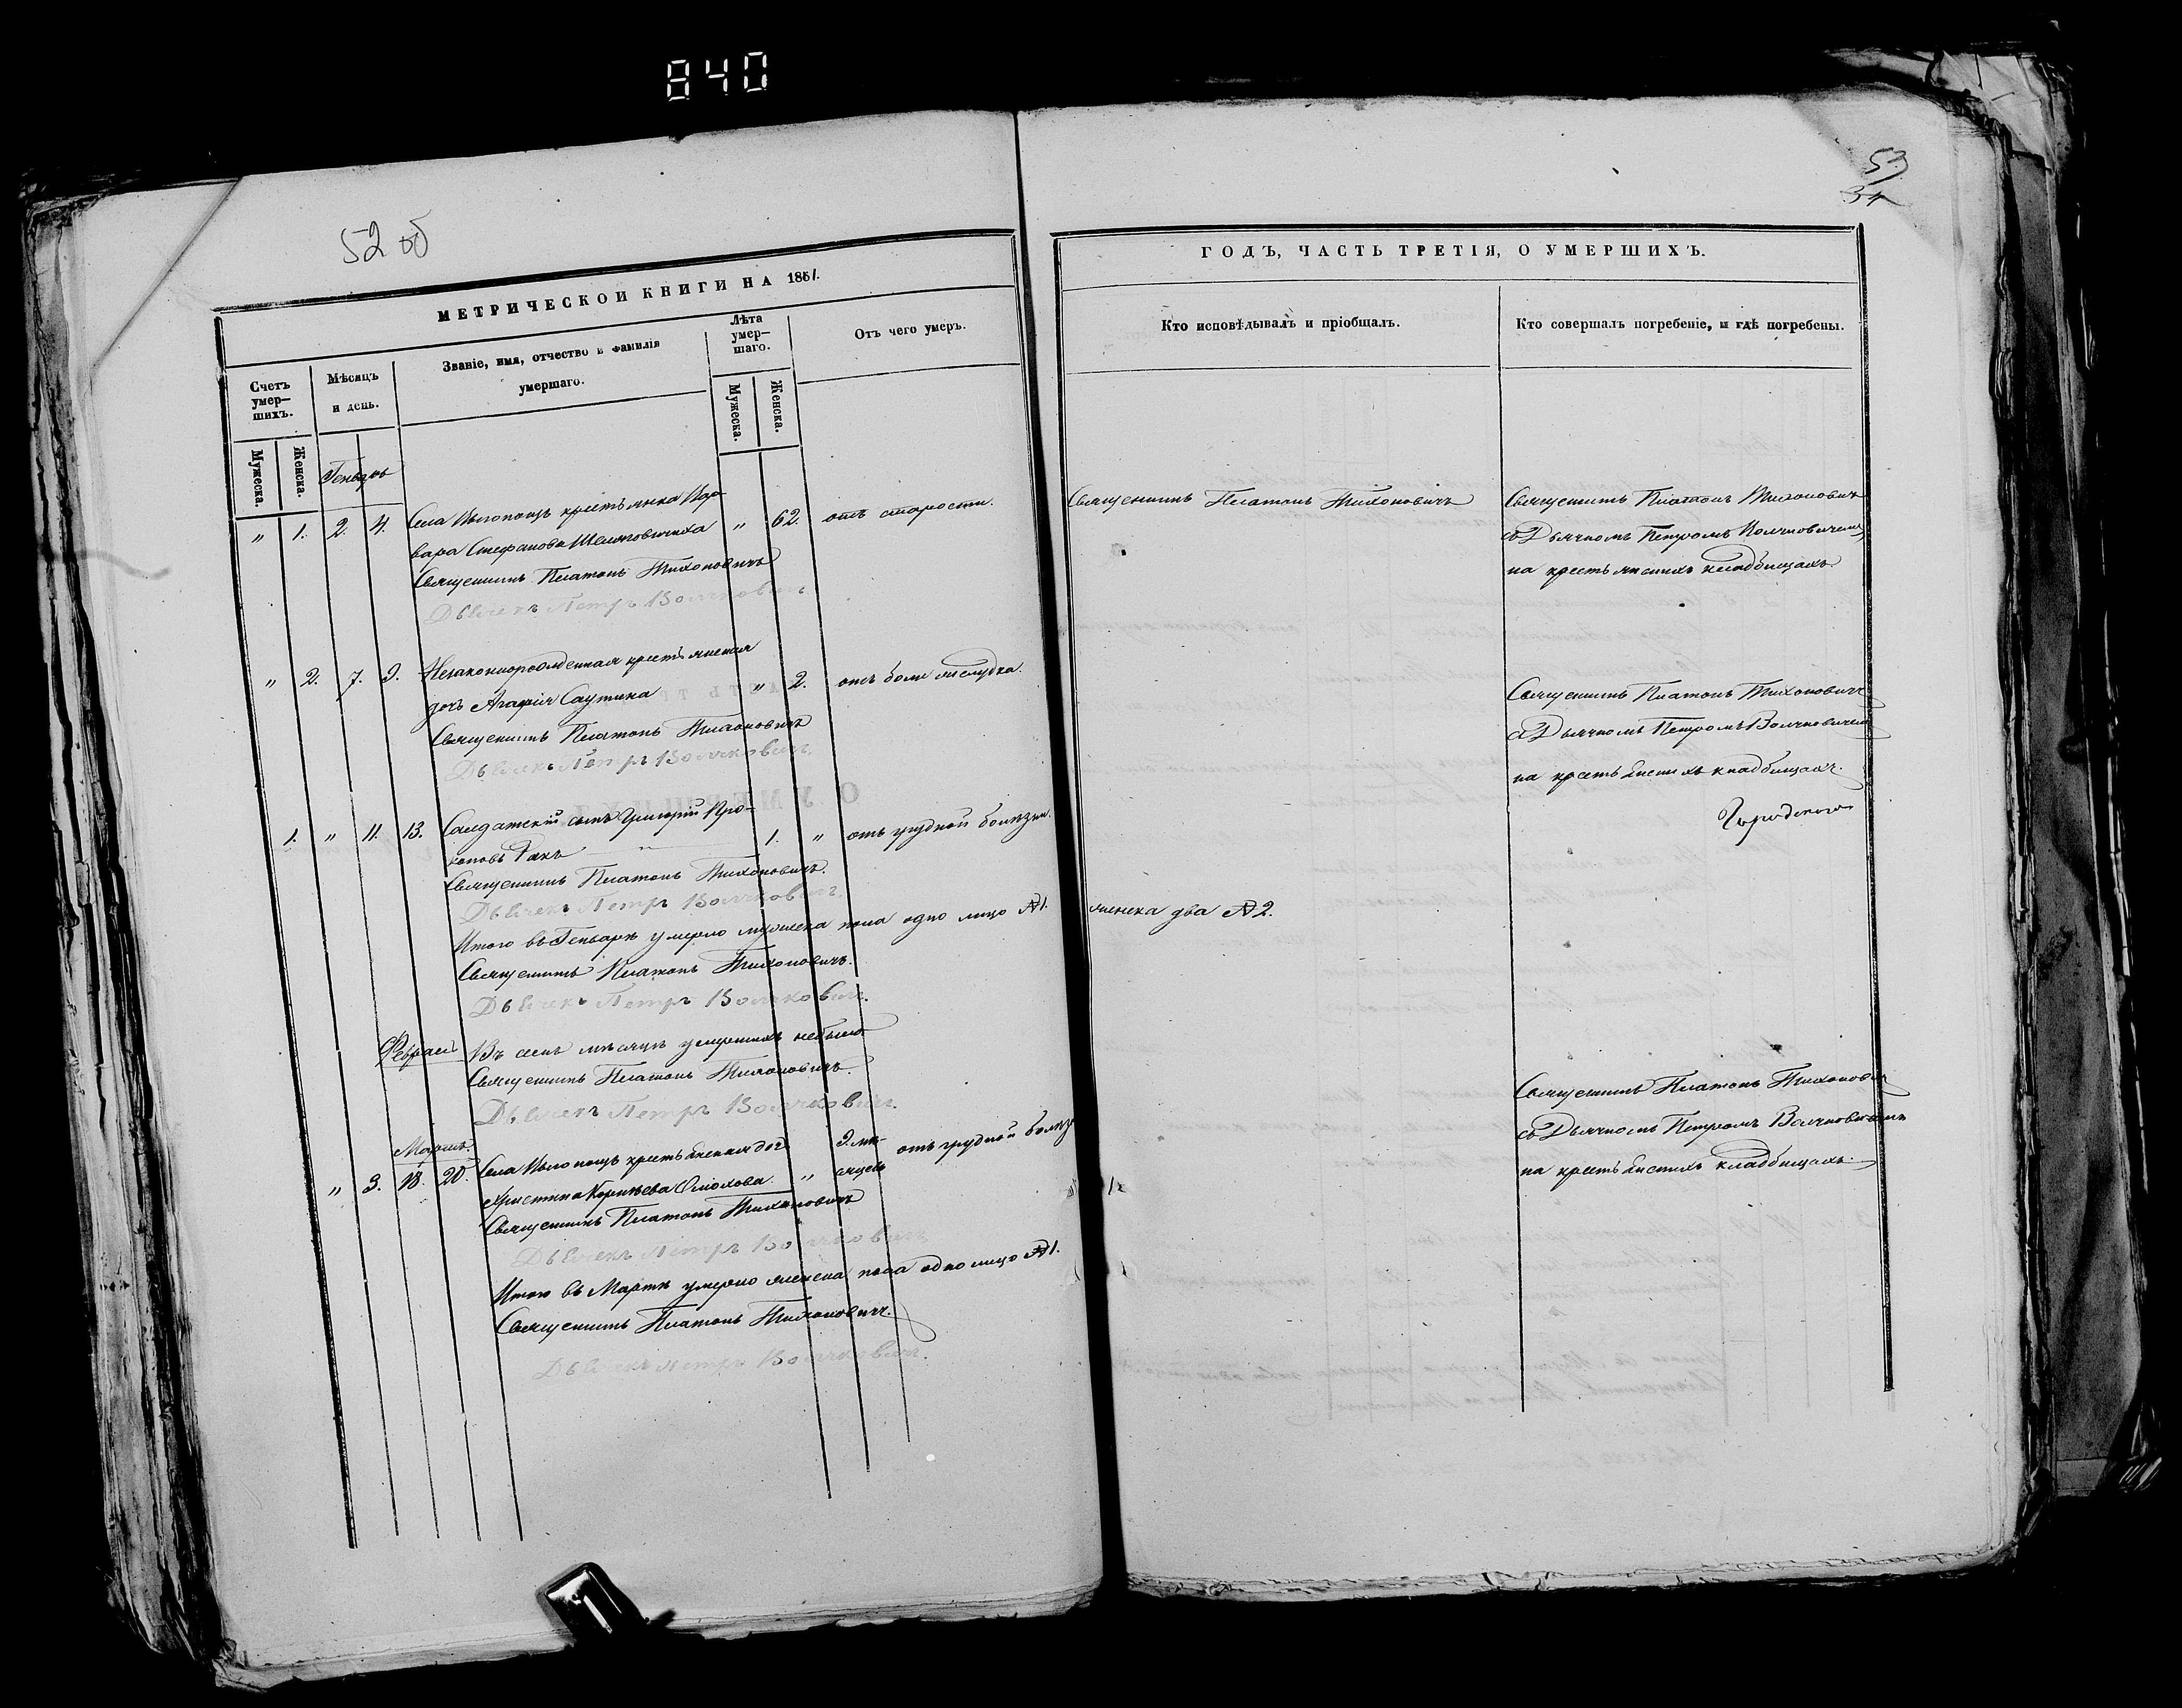 840
52 об
53
34
МЕТРИЧЕСКОЙ КНИГИ НА 1861.
Счетъ умер-шихъ.
Мѣсяцъ и день.
Званіе, имя, отчество и фамилія умершаго.
Лѣта умер-шаго.
Отъ чего умеръ.
Мужеска.
Женска.
Мужеска.
Женска.
Генварь
„ 1. 2. 4. Села крестьянка Вар-
вара Стефанова „ 62. отъ старости.
Священникъ Платонъ Тихоновичъ
Дьячекъ Петръ Волчковичъ
„ 2. 7. 9. Незаконнорожденная крестьянская
дочь Агафія Саутина „ 2. отъ боли желудка.
Священникъ Платонъ Тихоновичъ
Дьячекъ Петръ Волчковичъ
1. „ 11. 13. Солдатскій сынъ Григорій Про-
коповъ 1. „ отъ грудной болѣзни.
Священникъ Платонъ Тихоновичъ.
Дьячекъ Петръ Волчковичъ.
Итого въ Генварѣ умерло мужеска пола одно лицо №1.
Священникъ Платонъ Тихоновичъ.
Дьячекъ Петръ Волчковичъ.
Февраль Въ семъ мѣсяцѣ умершихъ небыло
Священникъ Платонъ Тихоновичъ.
Дьячекъ Петръ Волчковичъ.
Мартъ.
„ 3. 18. 20. Села крестьянская дочь 9. мѣ-
Христина Корнѣева „ сяцевъ отъ грудной болѣз
Священникъ Платонъ Тихоновичъ
Дьячекъ Петръ Волчковичъ
Итого въ Мартѣ умерло женска пола одно лицо №1.
Священникъ Платонъ Тихоновичъ.
Дьячекъ Петръ Волчковичъ.
ГОДЪ, ЧАСТЬ ТРЕТІЯ, О УМЕРШИХЪ.
Кто исповѣдывалъ и пріобщалъ.
Кто совершалъ погребеніе, и гдѣ погребены.
Священникъ Платонъ Тихоновичъ
Священникъ Платонъ Тихоновичъ
съ Дьячкомъ Петромъ Волчковичемъ
на крестьянскихъ кладбищахъ
Священникъ Платонъ Тихоновичъ
съ Дьячкомъ Петромъ Волчковичемъ
на крестьянскихъ кладбищахъ.
женска два №2.
Священникъ Платонъ Тихонович
съ Дьячкомъ Петромъ Волчковичемъ
на крестьянскихъ кладбищахъ.